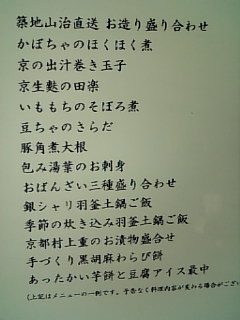 築地山治直送 お造り盛り合わせ
かぼちゃのほくほく煮
京の出汁巻き玉子
京生麩の田楽
いももちのそぼろ煮
豆ちゃのさらだ
豚角煮大根
包み湯葉のお刺身
おばんざい三種盛り合わせ
銀シャリ羽釜土鍋ご飯
季節の炊き込み羽釜土鍋ご飯
京都村上重のお漬物盛合せ
手づくり黒胡麻わらび餅
あったかい芋餅と豆腐アイス最中
[上記はメニューの一例です。予告なく料理内容が変わる場合がござい